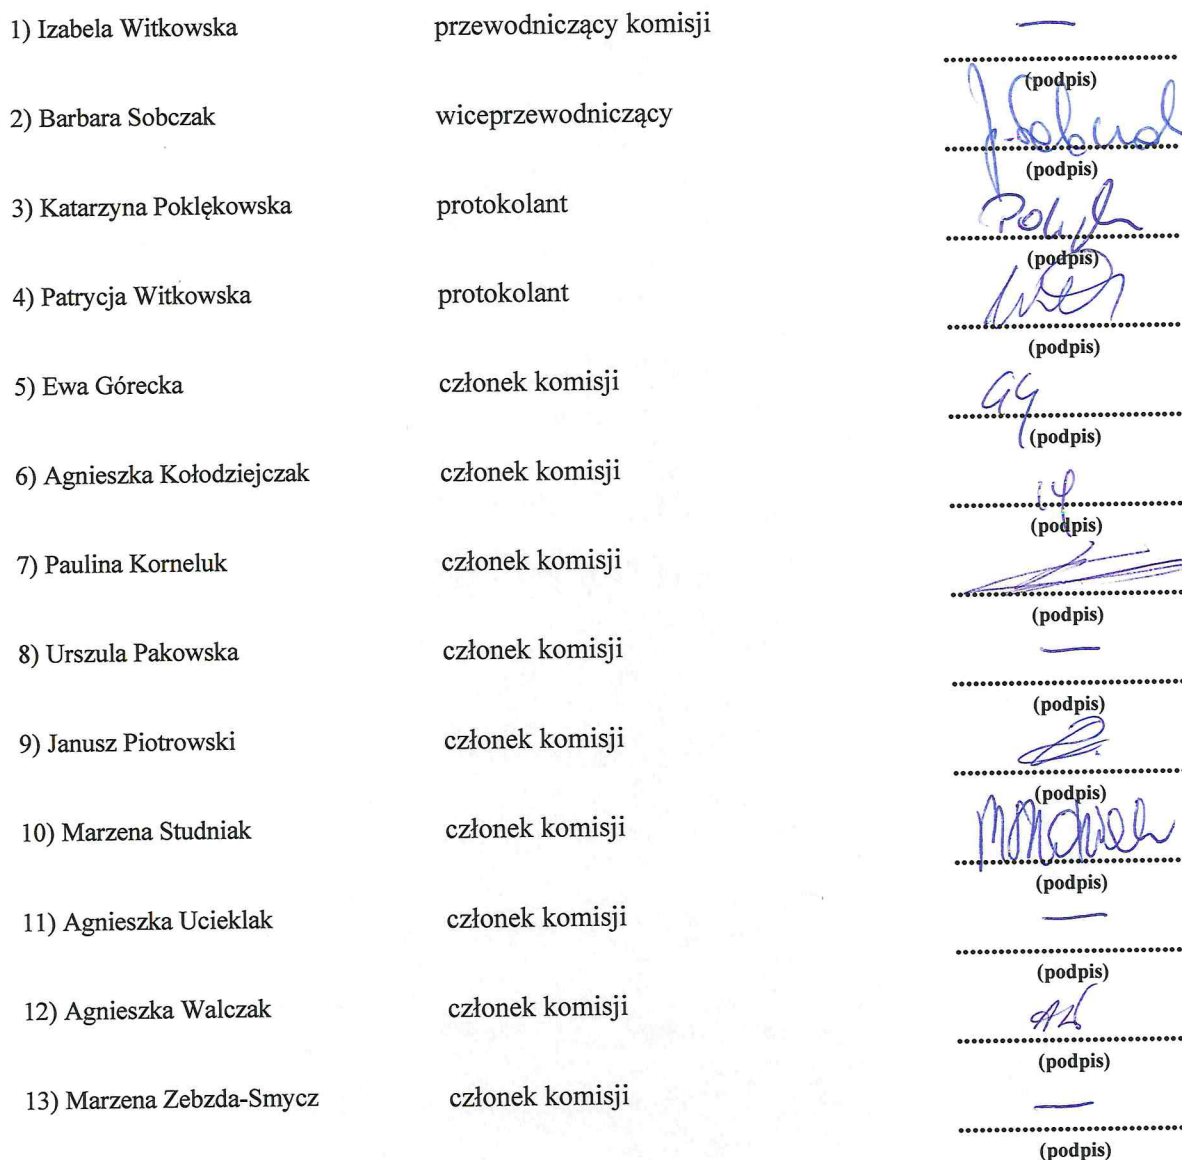 1) Izabela Witkowska przewodniczący komisji —
(podpis)
2) Barbara Sobczak wiceprzewodniczący
(podpis)
3) Katarzyna Poklękowska protokolant
(podpis)
4) Patrycja Witkowska protokolant
(podpis)
5) Ewa Górecka członek komisji
(podpis)
6) Agnieszka Kołodziejczak członek komisji
(podpis)
7) Paulina Korneluk członek komisji
(podpis)
8) Urszula Pakowska członek komisji —
(podpis)
9) Janusz Piotrowski członek komisji
(podpis)
10) Marzena Studniak członek komisji
(podpis)
11) Agnieszka Ucieklak członek komisji —
(podpis)
12) Agnieszka Walczak członek komisji
(podpis)
13) Marzena Zebzda-Smycz członek komisji —
(podpis)